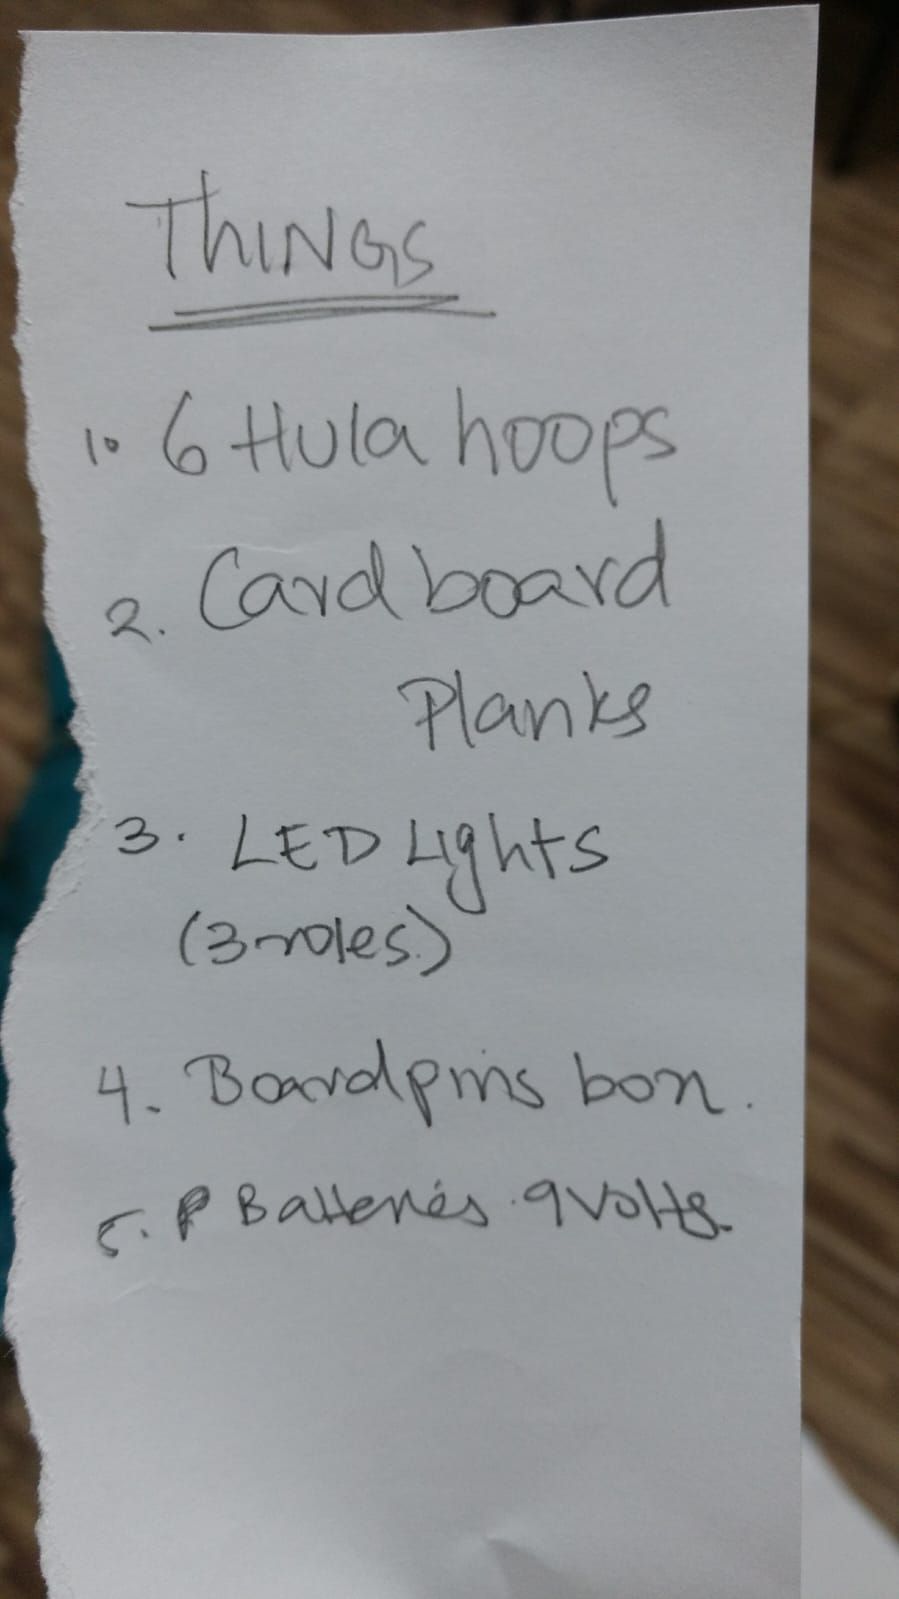 THINGS
1. 6 Hula hoops
2. Cardboard
Planks
3. LED Lights
(3 roles.)
4. Boardpins box.
5. Batteries 9Volts.